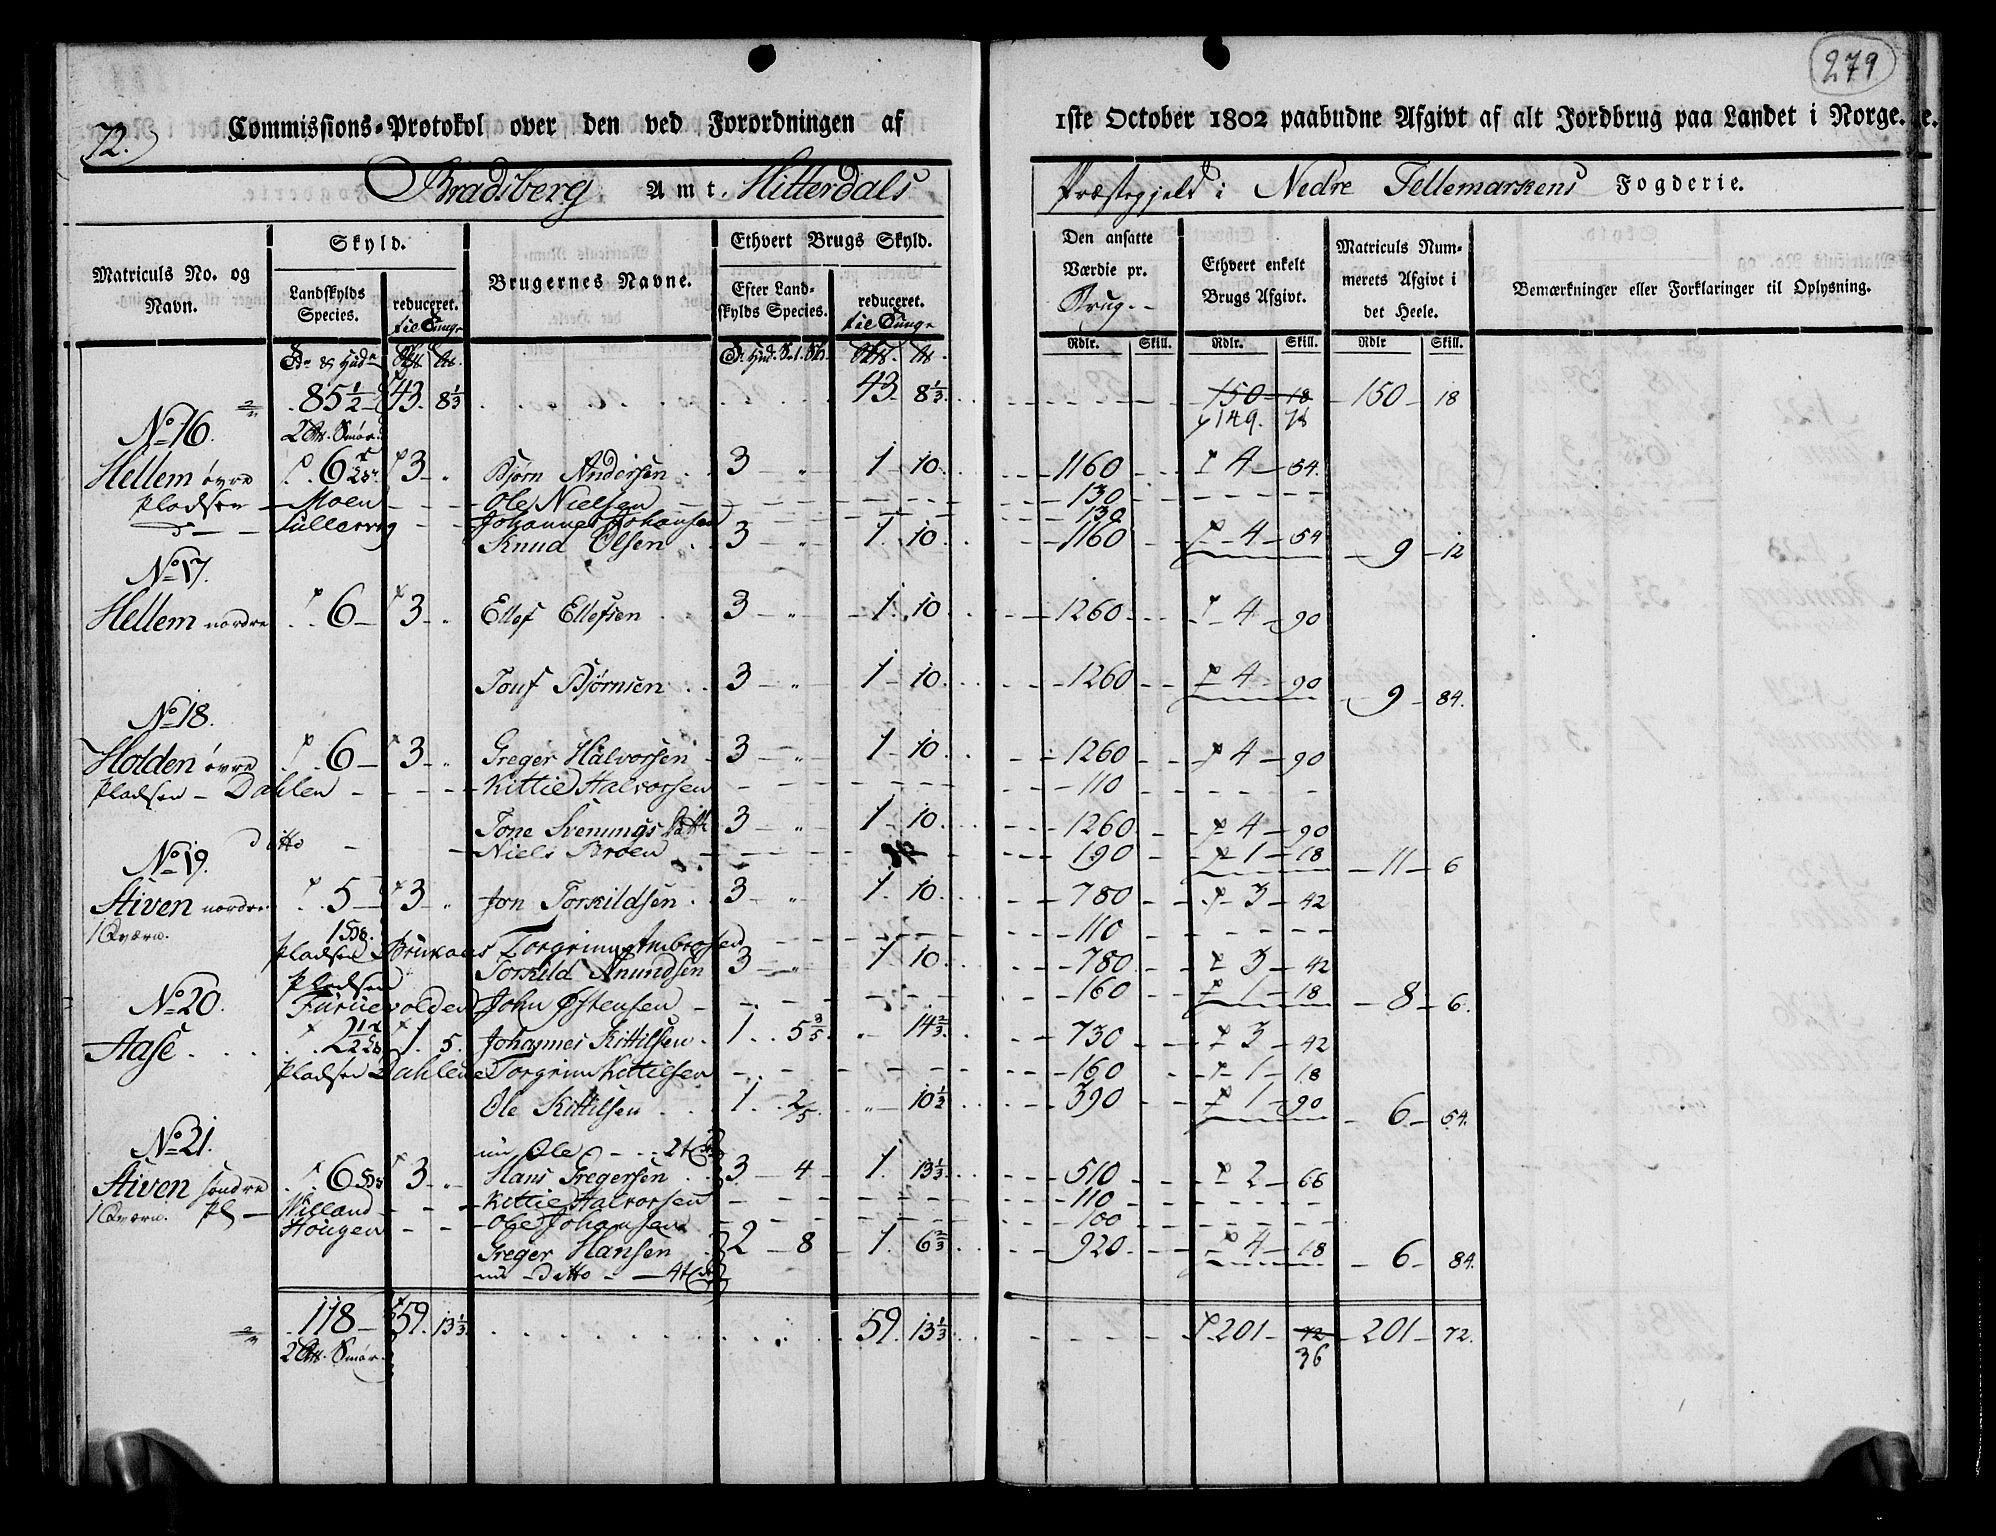 279
72.
Commissions-Protokol over den ved Forordningen af 1ste October 1802 paabudne Afgivt af alt Jordbrug paa Landet i Norge.
Bradsberg Amt Hitterdals Præstegjeld i Nedre Tellemarkens Fogderie.
Matriculs No. og Navn. Skyld. Landskylds Species. reduceret. til Tunge Brugernes Navne. Ethvert Brugs Skyld. Efter Landskylds Species. reduceret. til Tunge Den ansatte Værdie pr. Brug. Ethvert enkelt Brugs Afgivt. Matriculs Nummerets Afgivt i det Heele. Bemærkninger eller Forklaringer til Oplysning.
Rdlr. Skill. Rdlr. Skill. Rdlr Skill.
85 1/2 43. 8 1/3 43. 8 1/3 150 18 150 18
2 Smør. 149. 78
No 16.
Hellem øvre 6 3 Bjørn Andersen 3 1 10. 1160 4 54.
Pladsen Moen Ole Nielsen 130
Lullerveg Johannes Johansen 130
Knud Olsen 3 1. 10. 1160 4 54 9 12
No 17.
Hellem nordre 6 3 Ellef Ellefsen 3 1. 10 1260 4 90
Bjørnsen 3 1 10. 1260 4 90 9 84.
No 18.
Holden øvre 6 3 Greger Halvorsen 3 1 10 1260 4 90
Pladsen Dahlen Kittil Halvorsen 110
Tone Svenungs 3 1 10. 1260. 4 90
Ditto Niels Broen 190 1 18 11 6
No 19.
Stiven nordre 5 3 Jørn Torkildsen 3 1. 10. 780 3 42
1 Qværn.
Pladsen Torgrim Ambrosen 110
Torkild Anundsen 3 1 10. 780 3 42
Pladsen
Furuevolden John Østensen 160 1 18 8 6.
No 20.
Aase 2 1/2 1. 5. Johannes Kittilsen 1 5 3/5 14 2/3 730 3 42
Pladsen Dahlene Torgrim Kittilsen 160 1 18
Ole Kittilsen 1 2/5 10 1/2 390 1 90 6 54.
No 21.
nu Ole
Stiven søndre 6 3 Hans Gregersen 3 4 1. 13 1/3 510 2 66
1 Qværn. Pl Willand Kittil Halvorsen 110
Hougen Ole Johansen 100
Greger Hansen 2 8 1. 6 2/3 920 4 18 6 84.
nu Ditto
118 59. 13 1/3 59. 13 1/3 201 72 201 72.
2 Smør. 36